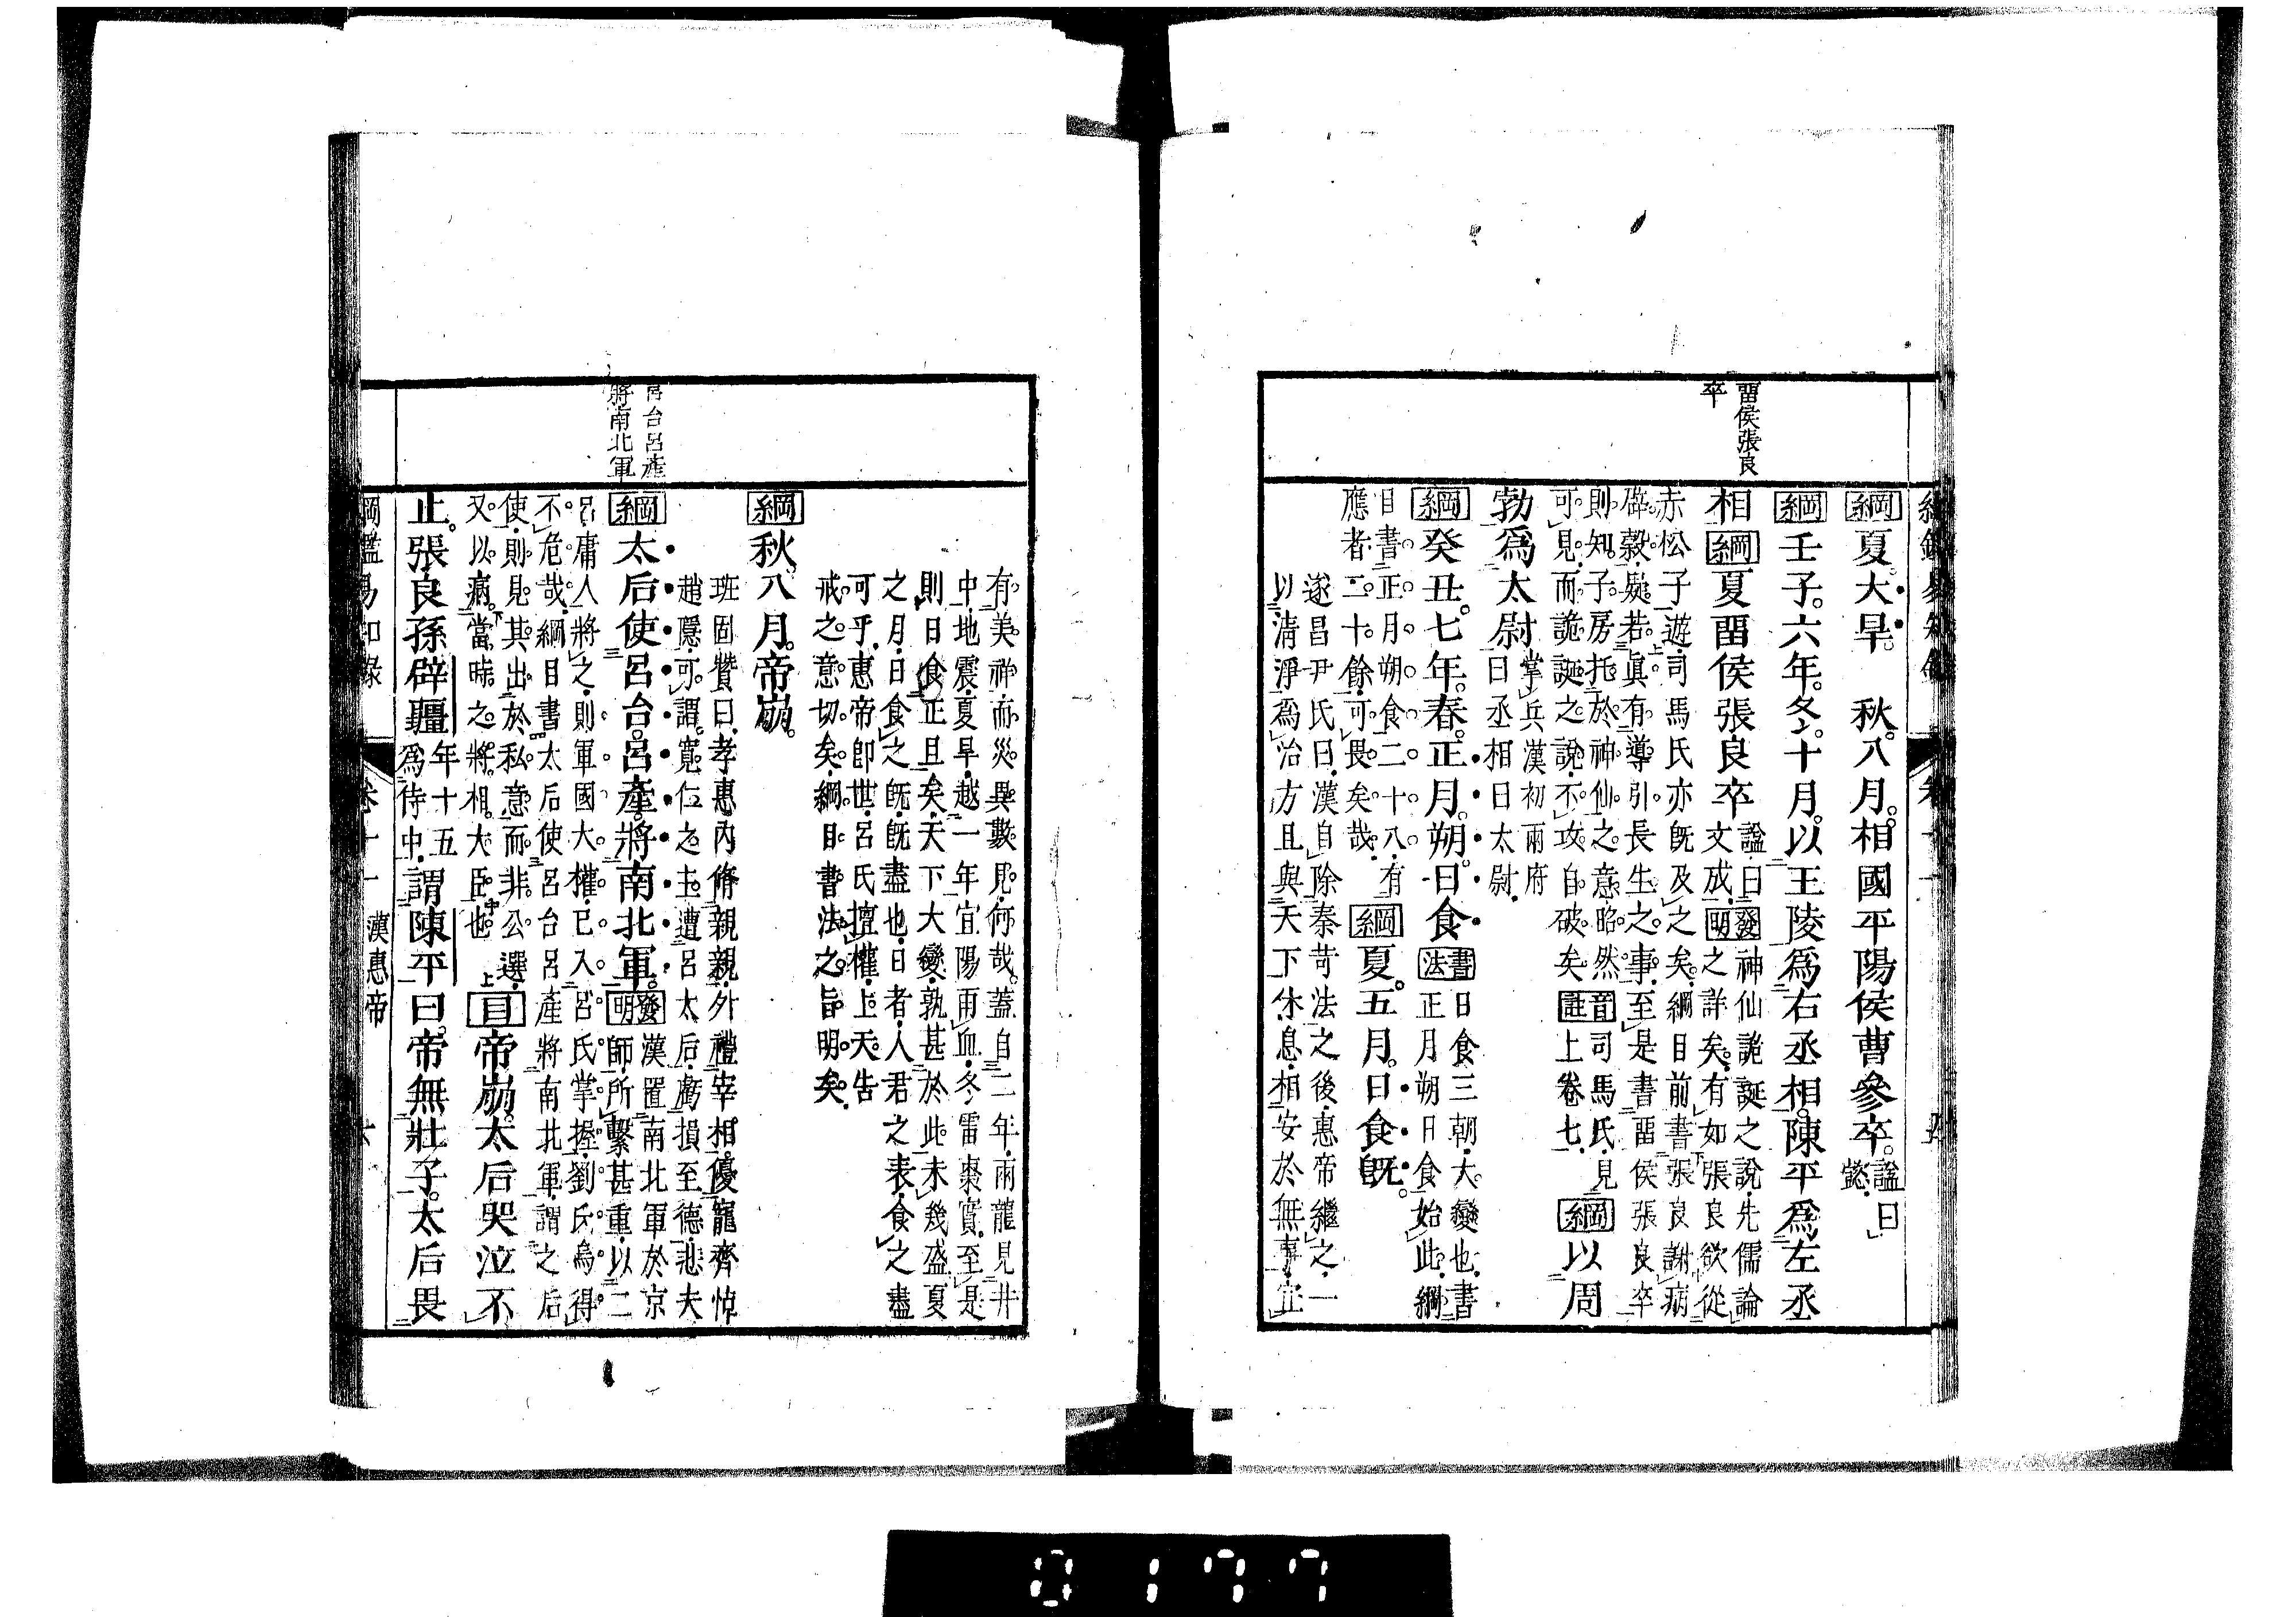 留侯張良
卒
綱夏大旱。秋八月。相國平陽侯曹參卒。諡曰
懿。
綱壬子。六年。冬十月。以王陵爲右丞相。陳平爲左丞
相綱夏留侯張良卒諡曰
文成。發
明神仙詭誕之說。先儒論
之詳矣。有如張良欲從
赤松子遊。司馬氏亦旣及之矣。綱目前書張良謝病
辟穀。疑若眞有導引長生之事。至是書留侯張良卒
則知子房托於神仙之意昭然
可見。而詭誕之說不攻自破矣。音
註司馬氏見
上卷七。綱以周
勃爲太尉掌兵漢初兩府
曰丞相曰太尉
綱癸丑。七年。春。正月。朔。日食書
法日食三朝。大變也。書
正月朔日食始此。綱
目書正月朔食二十八。有
應者二十餘。可畏矣哉。綱夏。五月。日食旣。
遂昌尹氏曰。漢自除秦苛法之後。惠帝繼之。一
以清淨爲治方且與天下休息。相安於無事。宜
呂台呂產
將南北軍
有美祥而災異數見。何哉。蓋自二年。兩龍見井
中。地震。夏旱。越一年宜陽雨血。冬雷棗實。至是
則日食正旦矣。天下大變。孰甚於此。未幾盛夏
之月。日食之旣。旣盡也。日者。人君之表。食之盡
可乎。惠帝卽世。呂氏擅權。上天告
戒之意切矣。綱目書法之旨明矣。
綱秋。八月。帝崩。
班固贊曰。孝惠內脩親親。外禮宰相。優寵齊悼
趙隱。可謂寬仁之主。遭呂太后虧損至德。悲夫
綱太后使呂台。呂產。將南北軍。發
明漢置南北軍於京
師。所繫甚重。以二
呂庸人將之。則軍國大權。已入呂氏掌握。劉氏烏得
不危哉。綱目書太后使呂台呂產將南北軍。謂之后
使。則見其出於私意而非公選。
又以病當時之將相大臣也。目帝崩。太后哭泣不
止。張良孫辟疆年十五
爲侍中。謂陳平曰。帝無壯子。太后畏
綱鑑易知錄 卷十一 漢惠帝
0177